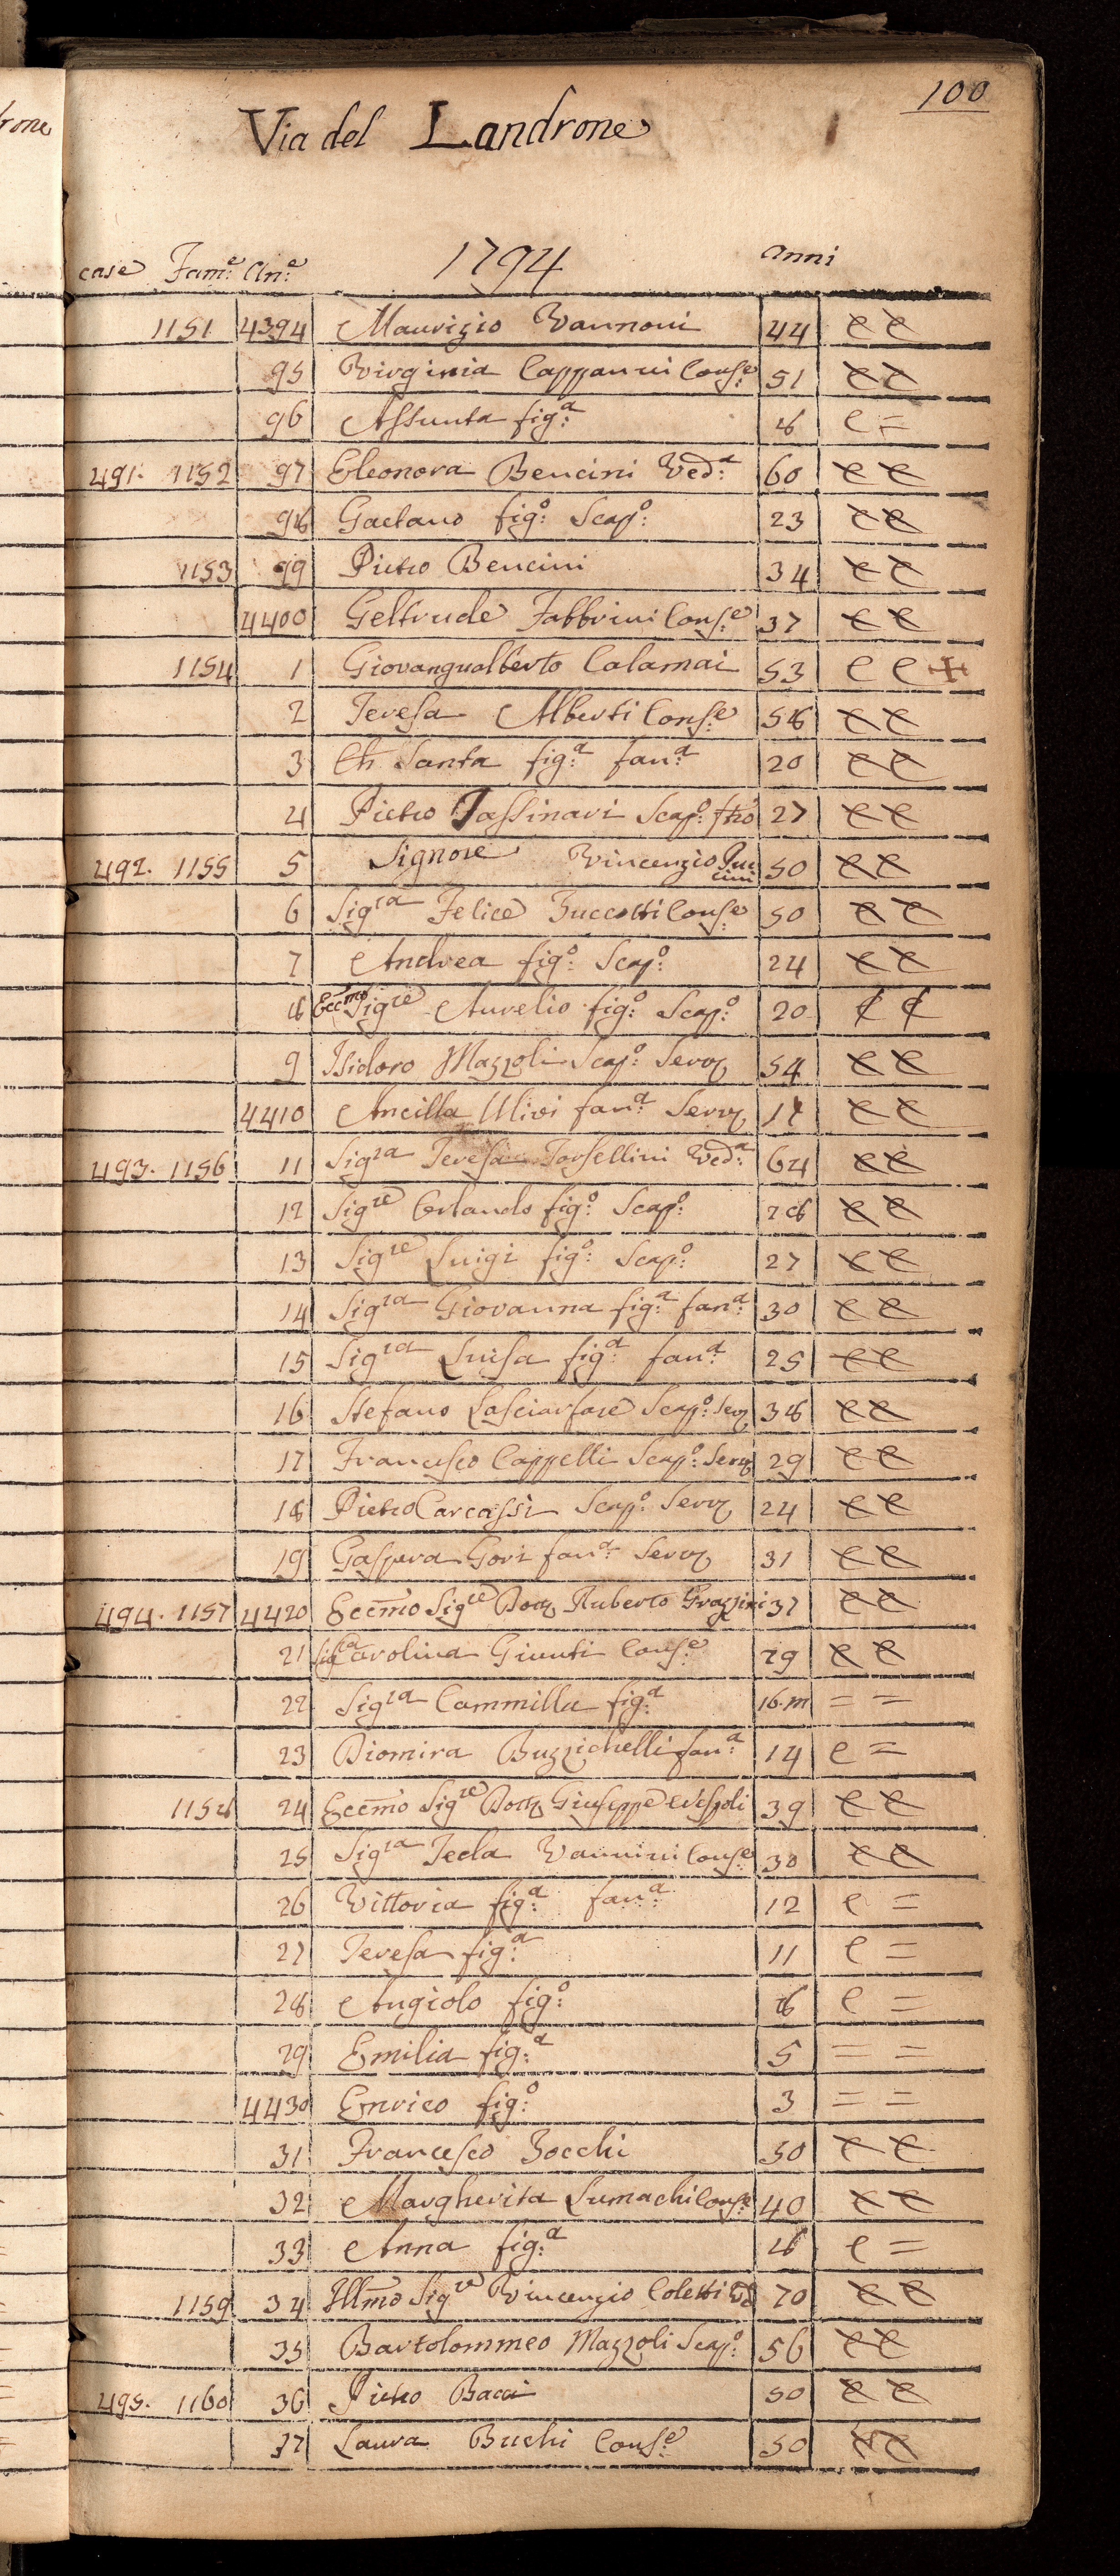 rone
100
Via del Landrone
case Fam.e An.e 1794 anni
1151 4394 Maurizio Vannoni 44 e e
95 Virginia Cappanni Cons.e 51 e e
96 Assunta fig.a 8 e =
491. 1152 97 Eleonora Bencini Ved.a 60 e e
98 Gaetano fig.o Scap.o 23 e e
1153 99 Pietro Bencini 34 e e
4400 Geltrude Fabbrini Cons.e 37 e e
1154 1 Giovangualberto Calamai 53 e e +
2 Teresa Alberti Cons.e 58 e e
3 Santa fig.a fan.a 20 e e
4 Pietro Tassinari Scap.o 27 e e
492. 1155 5 Signore Vincenzio Puccini 50 e e
6 Sig.ra Felice Zuccotti Cons.e 50 e e
7 Andrea fig.o Scap.o 24 e e
8 Ecc.mo Sig.re Aurelio fig.o Scap.o 20 e e
9 Isidoro Mazzoli Scap.o Serv. 54 e e
4410 Ancilla Ulivi fan.a Serv. e e
493. 1156 11 Sig.ra Teresa Torsellini Ved.a 64 e e
12 Sig.re Orlando fig.o Scap.o 28 e e
13 Sig.re Luigi fig.o Scap.o 27 e e
14 Sig.ra Giovanna fig.a fan.a 30 e e
15 Sig.ra Luisa fig.a fan.a 25 e e
16 Stefano Lasciarfare Scap.o Serv. 38 e e
17 Francesco Cappelli Scap.o Serv. 29 e e
18 Pietro Carcassi Scap.o Serv. 24 e e
19 Gaspera Gori fan.a Serv. 31 e e
494. 1157 4420 Eccmo Sig.re Dott. Ruberto Grazzini 37 e e
21 Sig.ra Carolina Giunti Cons.e 29 e e
22 Sig.ra Cammilla fig.a 16.m = =
23 Diomira Buzzichelli fan.a 14 e =
1158 24 Eccmo Sig.re Dott. Giuseppe Vespoli 39 e e
25 Sig.ra Tecla Vannini Cons.e 30 e e
26 Vittoria fig.a fan.a 12 e =
27 Teresa fig.a 11 e =
28 Angiolo fig.o 8 e =
29 Emilia fig.a 5 = =
4430 Enrico fig.o 3 = =
31 Francesco Zocchi 50 e e
32 Margherita Lumachi Cons.e 40 e e
33 Anna fig.a 8 e =
1159 34 Illmo Sig.re Vincenzio Coletti Vd 70 e e
35 Bartolommeo Mazzoli Scap.o 56 e e
495. 1160 36 Pietro Bacci 50 e e
37 Laura Buchi Cons.e 50 e e